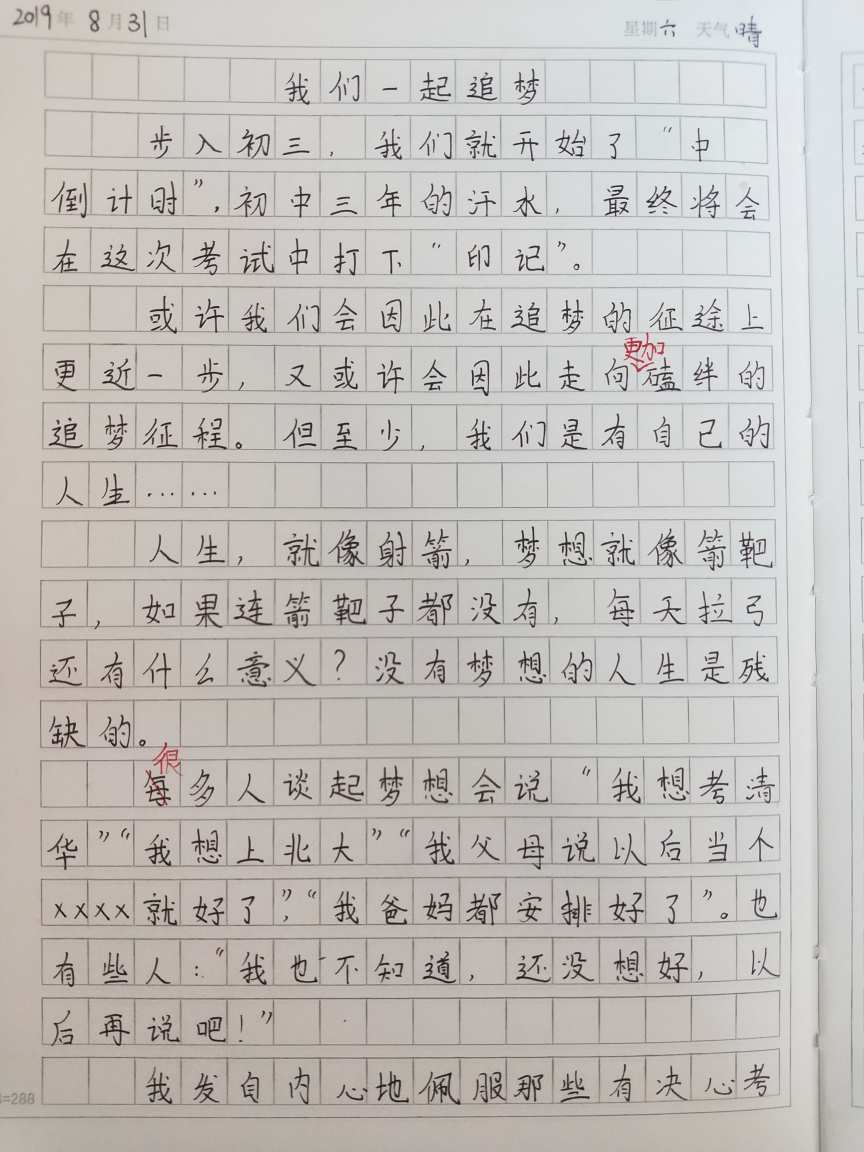 2019年8月31日 星期六 天气晴
我们一起追梦
步入初三，我们就开始了“中
倒计时”，初中三年的汗水，最终将会
在这次考试中打下“印记”。
或许我们会因此在追梦的征途上
更近一步，又或许会因此走向更加磕绊的
追梦征程。但至少，我们是有自己的
人生……
人生，就像射箭，梦想就像箭靶
子，如果连箭靶子都没有，每天拉弓
还有什么意义？没有梦想的人生是残
缺的。
很多人谈起梦想会说“我想考清
华”“我想上北大”“我父母说以后当个
××××就好了”，“我爸妈都安排好了”。也
有些人：“我也不知道，还没想好，以
后再说吧！”
我发自内心地佩服那些有决心考
=288